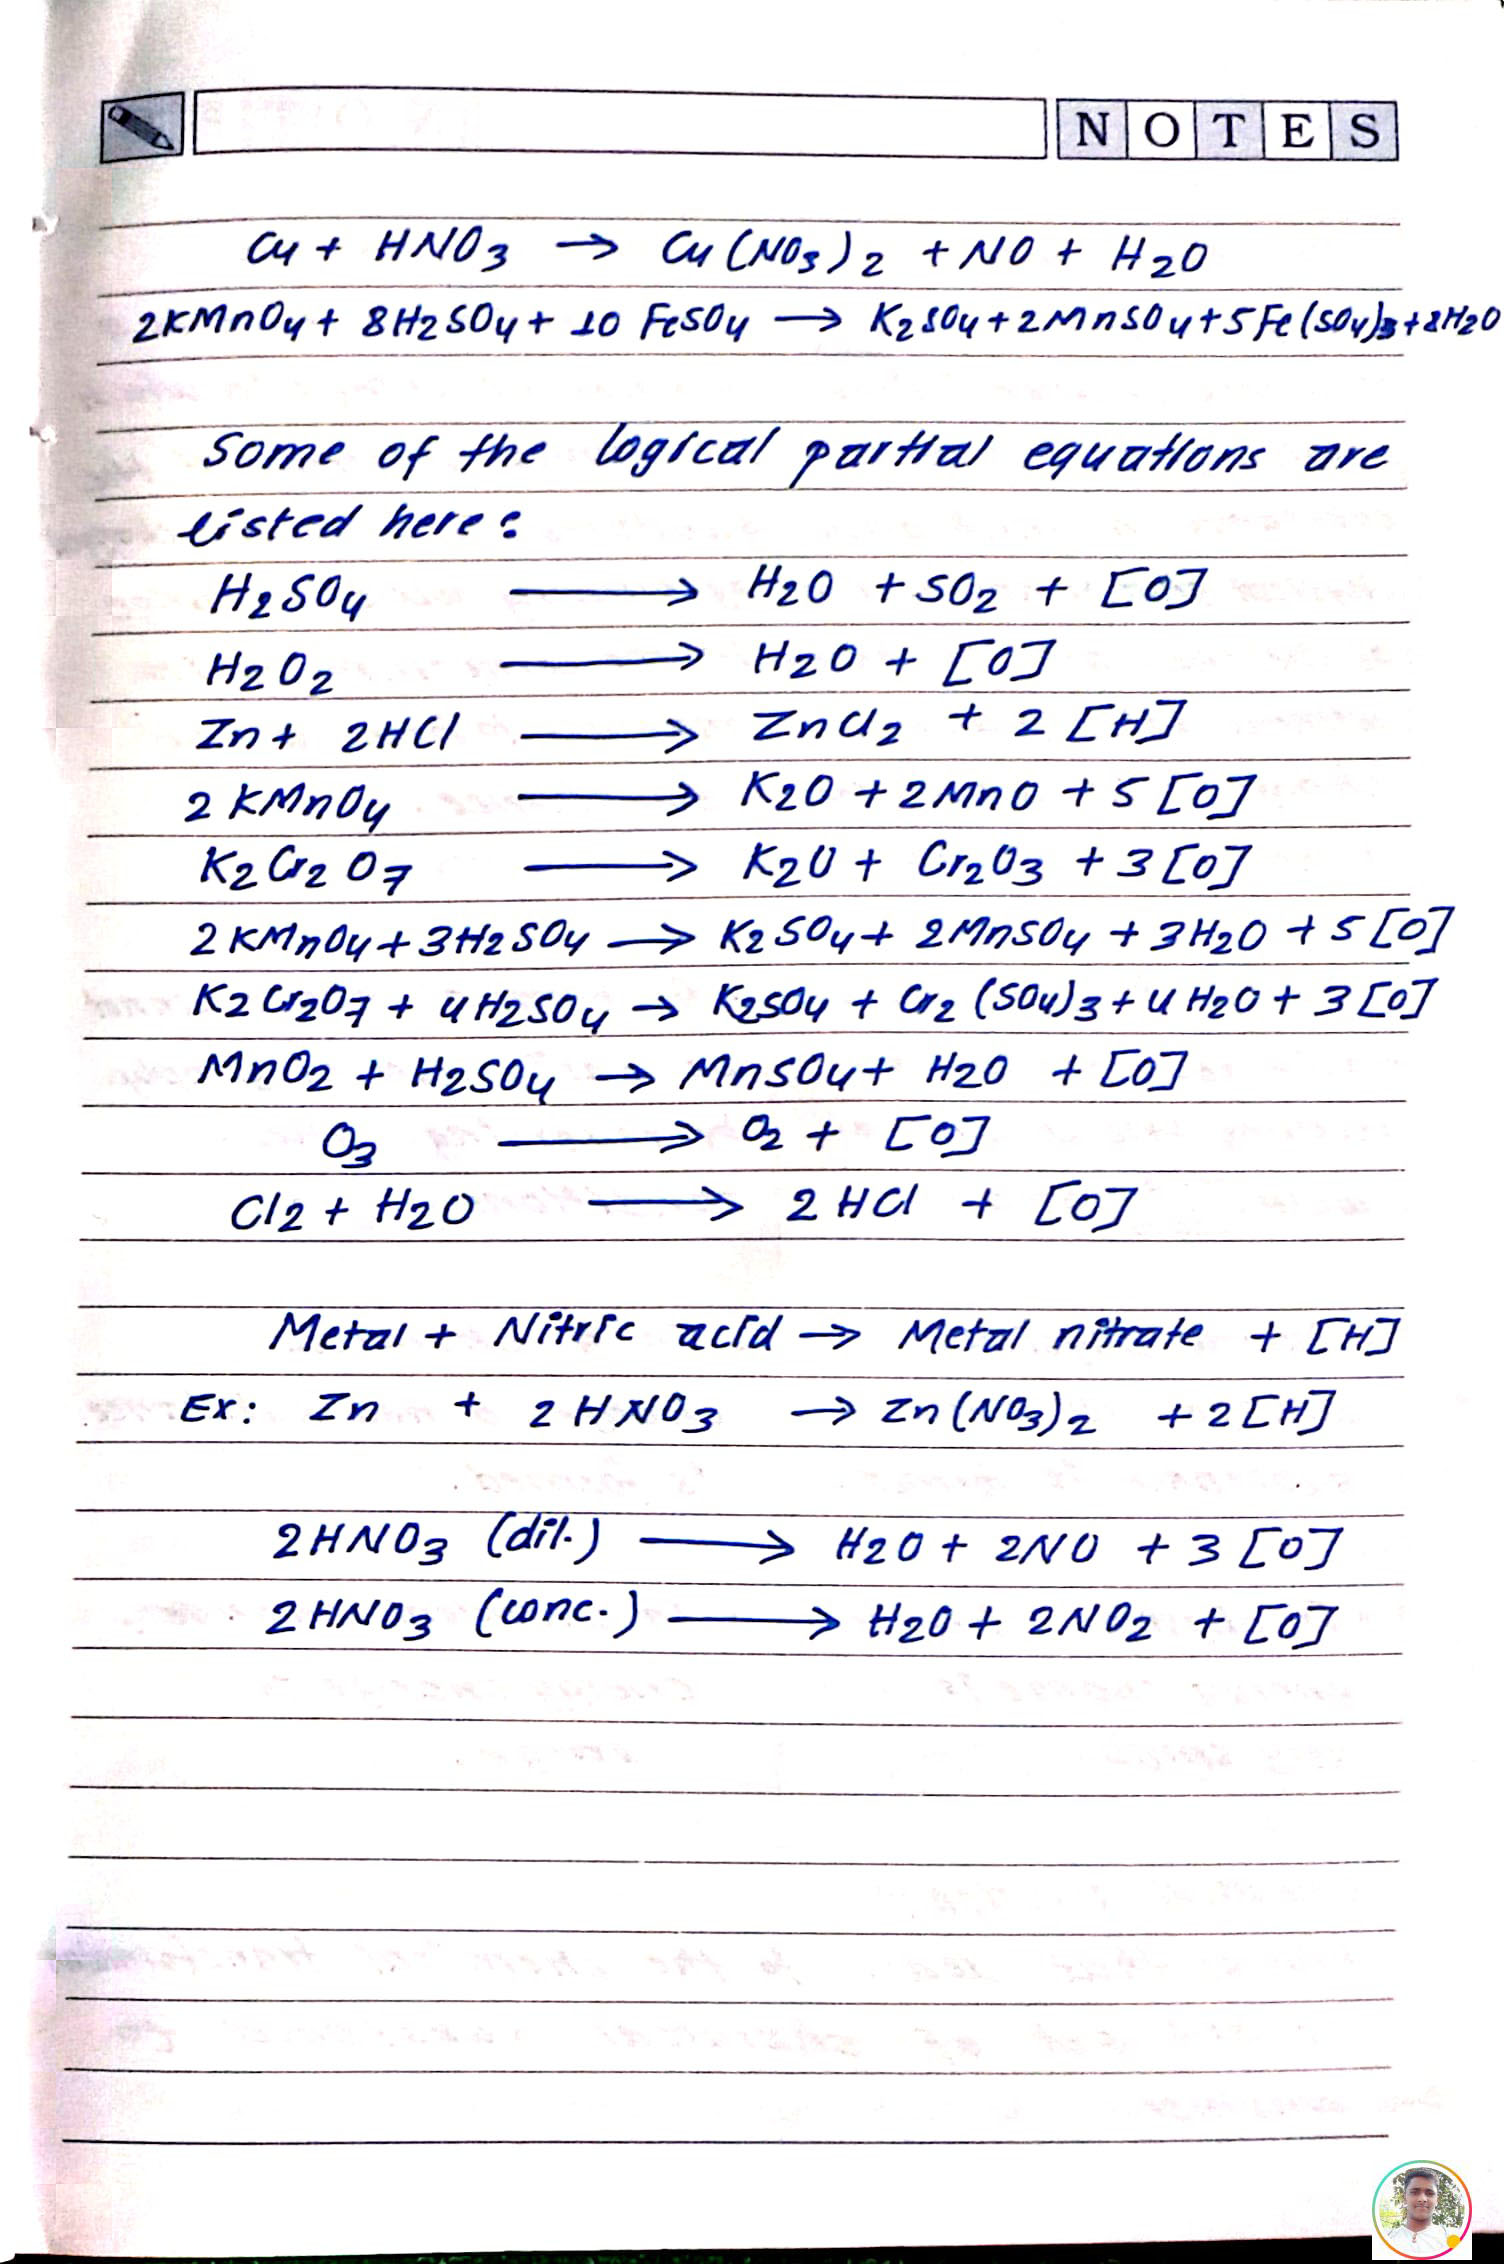 NOTES
Cu + HNO3 → Cu(NO3)2 + NO + H2O
2KMnO4 + 8H2SO4 + 10 FeSO4 → K2SO4 + 2MnSO4 + 5Fe(SO4)3 + 8H2O
Some of the logical partial equations are
listed here:
H2SO4 → H2O + SO2 + [O]
H2O2 → H2O + [O]
Zn + 2HCl → ZnCl2 + 2[H]
2KMnO4 → K2O + 2MnO + 5[O]
K2Cr2O7 → K2O + Cr2O3 + 3[O]
2KMnO4 + 3H2SO4 → K2SO4 + 2MnSO4 + 3H2O + 5[O]
K2Cr2O7 + 4H2SO4 → K2SO4 + Cr2(SO4)3 + 4H2O + 3[O]
MnO2 + H2SO4 → MnSO4 + H2O + [O]
O3 → O2 + [O]
Cl2 + H2O → 2HCl + [O]
Metal + Nitric acid → Metal nitrate + [H]
Ex: Zn + 2HNO3 → Zn(NO3)2 + 2[H]
2HNO3 (dil.) → H2O + 2NO + 3[O]
2HNO3 (conc.) → H2O + 2NO2 + [O]